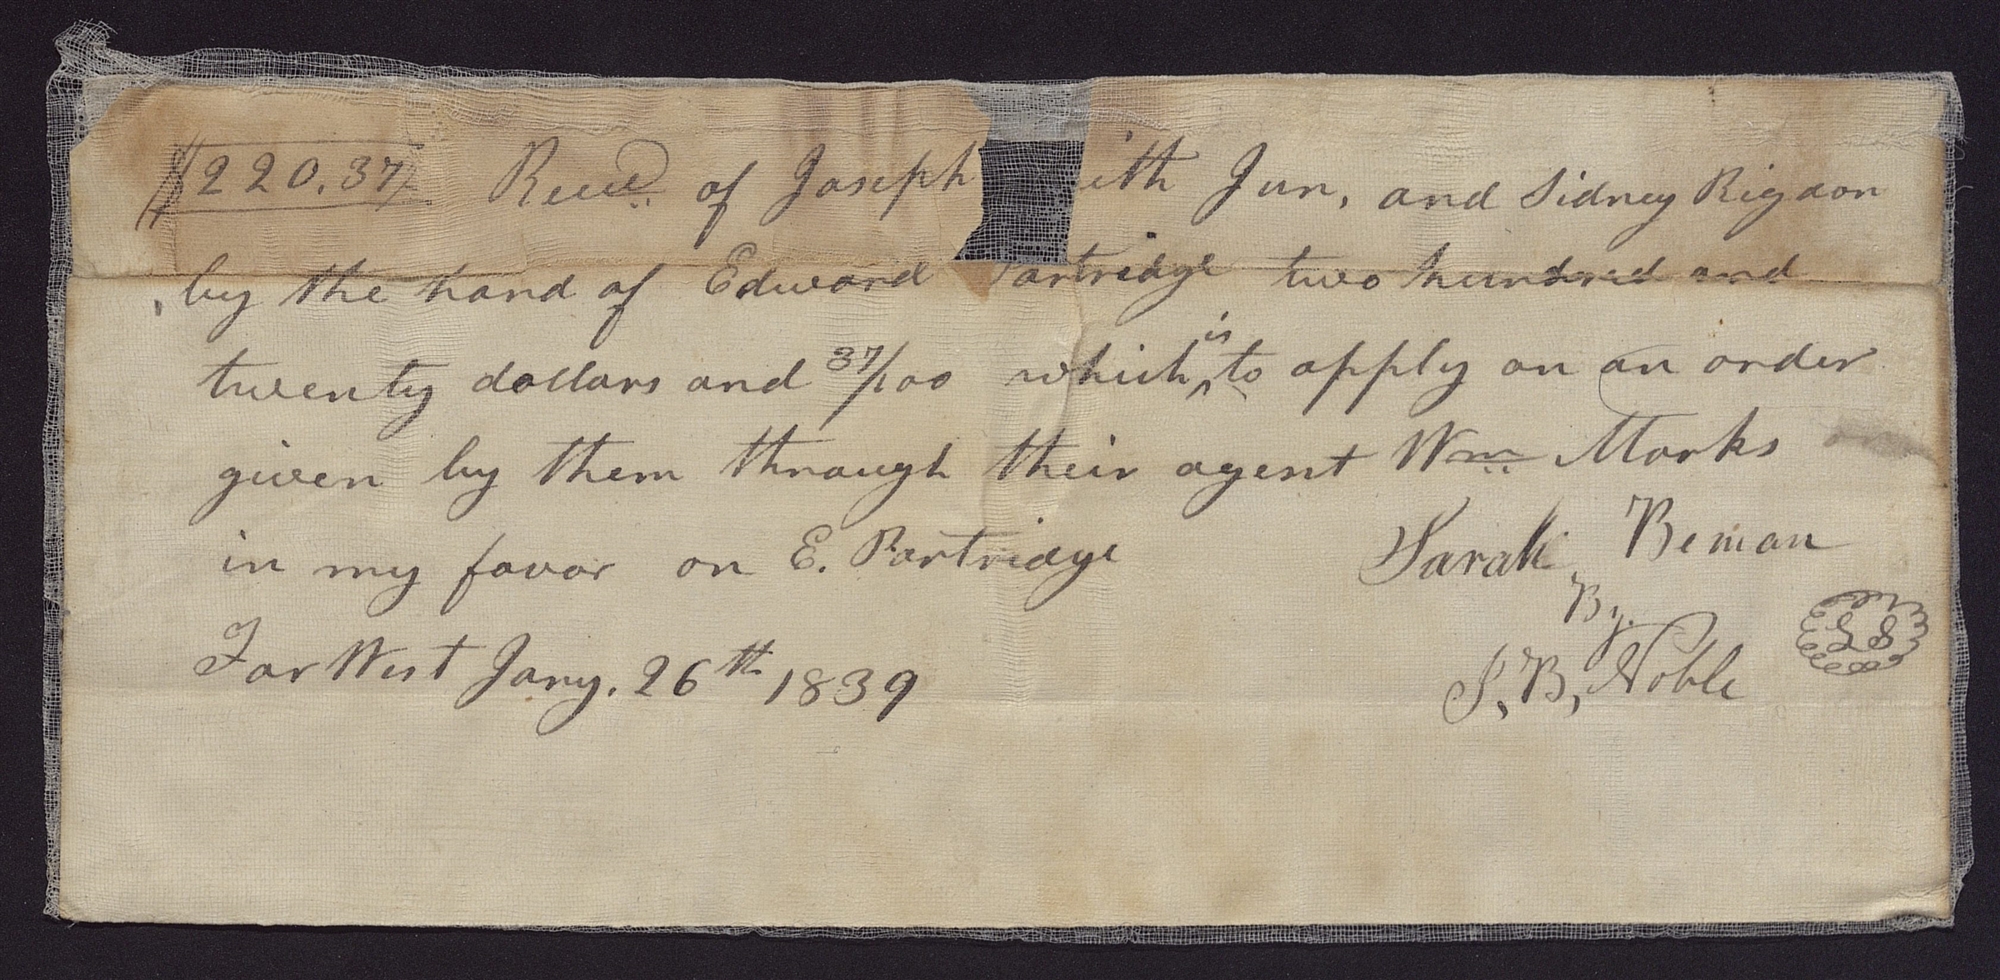 $220.37 Recd. of Joseph ith Jun, and Sidney Rigdon
by the hand of Edward Partridge two hundred and
twenty dollars and 37/100 which is to apply on an order
given by them through their agent Wm Marks
in my favor on E. Partridge
Sarah Beman
By
J, B, Noble
LS
Far West Jany. 26th 1839